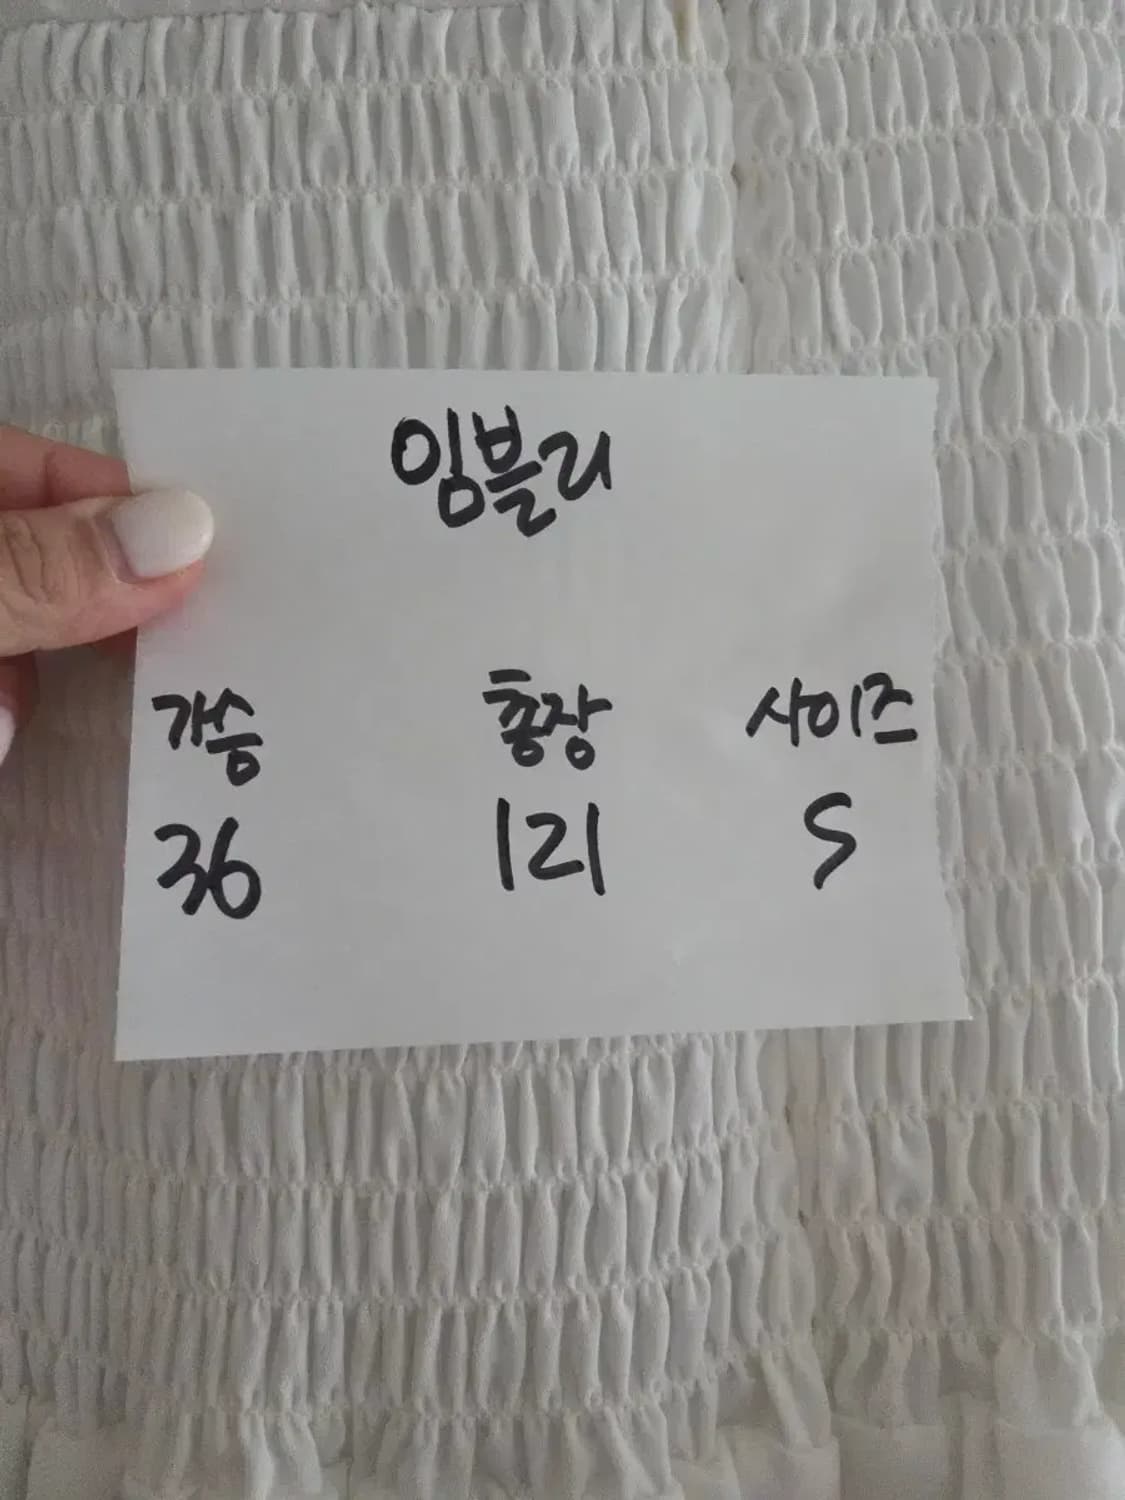 임블리
가슴 총장 사이즈
36 121 S